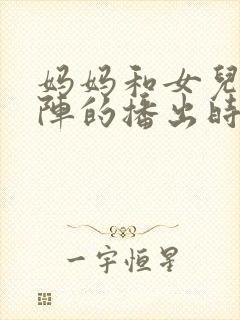 妈妈和女兒
陣的播出時
一宇恒星